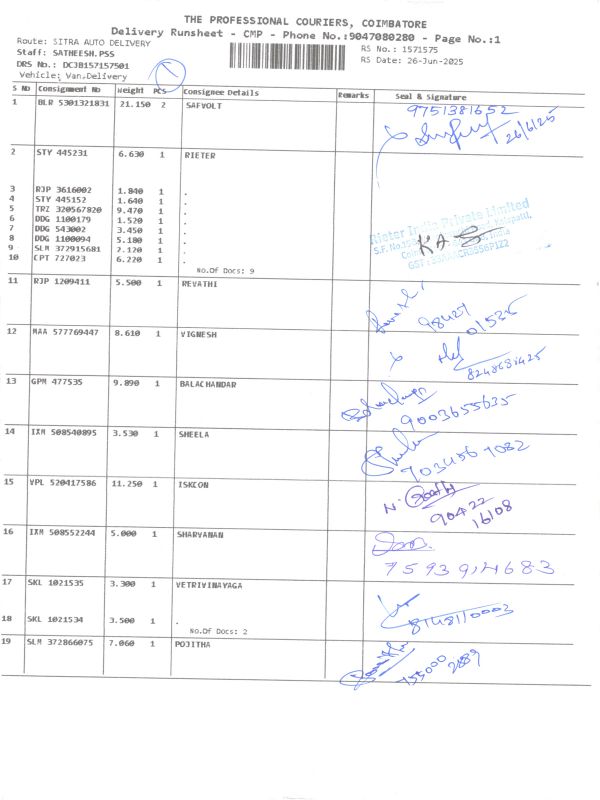 THE PROFESSIONAL COURIERS, COIMBATORE
Delivery Runsheet - CMP - Phone No.:9047080280 - Page No.:1
Route: SITRA AUTO DELIVERY
RS No.: 1571575
Staff: SATHEESH.PSS
RS Date: 26-Jun-2025
DRS No.: DCJB157157501
Vehicle: Van,Delivery
1
S No Consignment No Weight PCS Consignee Details Remarks Seal & Signature
1 BLR 5301321831 21.150 2 SAFVOLT 9751381652
26/6/25
2 STY 445231 6.630 1 RIETER
3 RJP 3616002 1.840 1 .
4 STY 445152 1.640 1 .
5 TRZ 320567820 9.470 1 .
6 DDG 1100179 1.520 1 .
7 DDG 543002 3.450 1 .
8 DDG 1100094 5.180 1 .
9 SLM 372915681 2.120 1 .
10 CPT 727023 6.220 1 .
No.Of Docs: 9
Rieter India Private Limited
KAS
11 RJP 1209411 5.500 1 REVATHI
98427
01525
12 MAA 577769447 8.610 1 VIGNESH
8248681425
13 GPM 477535 9.890 1 BALACHANDAR
9003655635
14 IXM 508540895 3.530 1 SHEELA
7034567082
15 VPL 520417586 11.250 1 ISKCON
90422
16108
16 IXM 508552244 5.000 1 SHARVANAN
7593914683
17 SKL 1021535 3.300 1 VETRIVINAYAGA
8148110003
18 SKL 1021534 3.500 1 .
No.Of Docs: 2
19 SLM 372866075 7.060 1 POJITHA
755000
2889